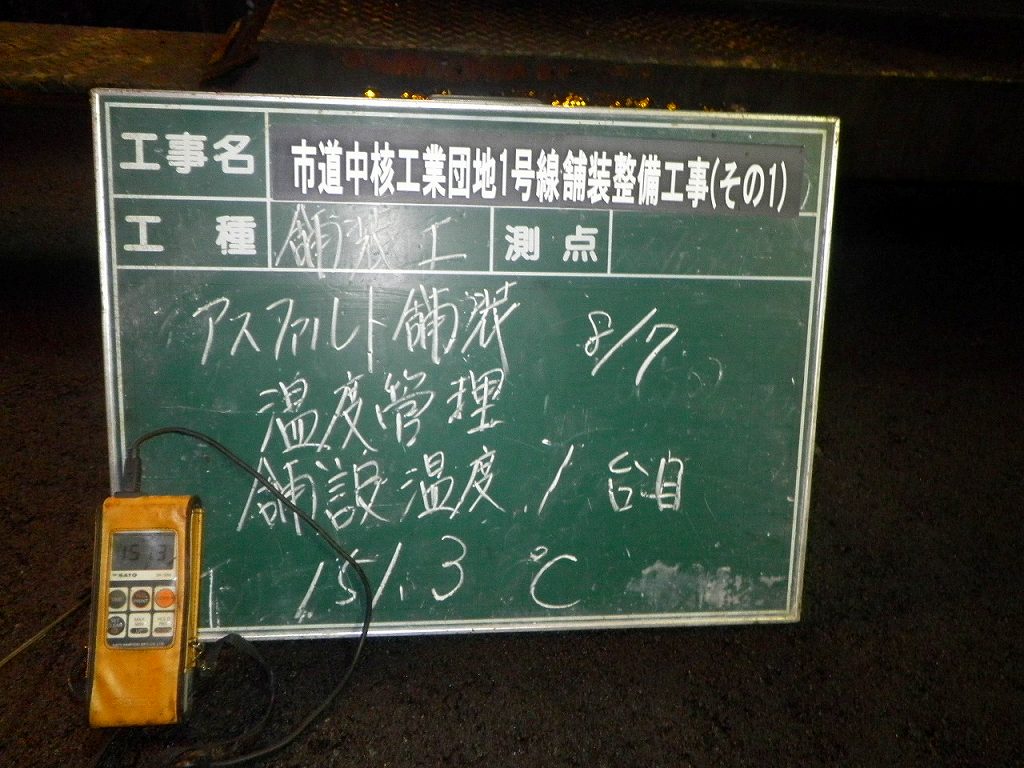 工事名 市道中核工業団地1号線舗装整備工事(その1)
工種 舗装工 測点
アスファルト舗装 8/7
温度管理
舗設温度 1台目
151.3℃
151.3
SATO